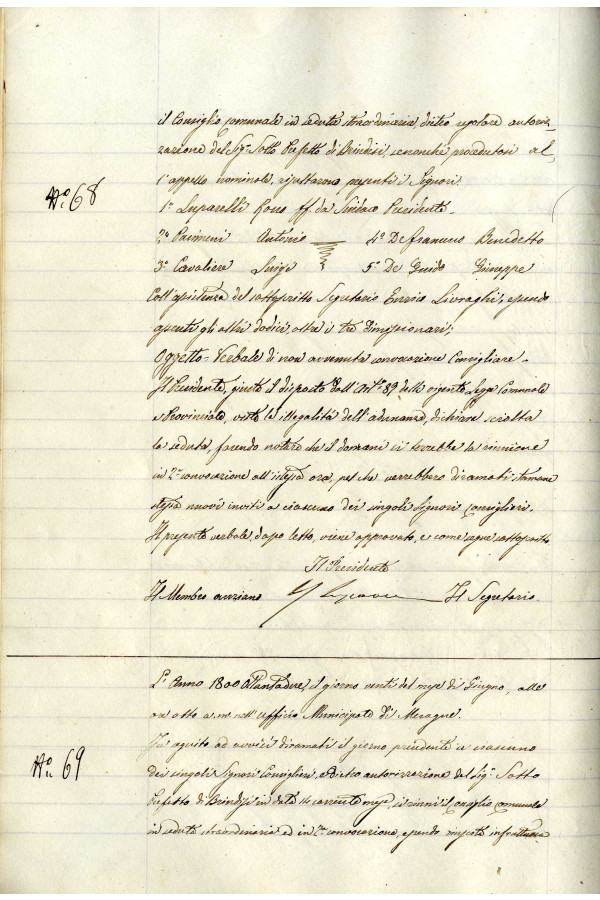 il Consiglio comunale in seduta straordinaria, dietro regolare autoriz-
zazione del Sig.r Sotto Prefetto di Brindisi, senonchè procedutosi al-
l'appello nominale, risultarono presenti i Signori.
N.o 68
1.o Luparelli ff. da Sindaco Presidente.
2.o Antonio 4.o Defrancesco Benedetto
3.o Cavaliere Luigi 5.o De Guido Giuseppe
Coll'assistenza del sottoscritto Segretario Enrico Livraghi, essendo
assenti gli altri dodici, oltre i tre dimissionari;
Oggetto = Verbale di non avvenuta convocazione Consigliare.
Il Presidente, giusto il disposto dall'Art.o 89 della vigente Legge Comunale
e Provinciale, vista la illegalità dell'adunanza, dichiara sciolta
la seduta, facendo notare che il domani si terrebbe la riunione
in 2.a convocazione all'istessa ora, pel che verrebbero diramati stamane
stessa nuovi inviti a ciascuno dei singoli Signori Consiglieri.
Il presente verbale, dopo letto, viene approvato, e come segue sottoscritto
Il Presidente
Il Membro anziano Il Segretario
L'Anno 1800 il giorno venti del mese di Giugno, alle
ore otto a.m. nell'Ufficio Municipale di Mesagne.
N.o 69
In seguito ad avvisi diramati il giorno precedente a ciascuno
dei singoli Signori Consiglieri, e dietro autorizzazione del Sig.r Sotto
Prefetto di Brindisi in data 14 corrente mese, si riunì il Consiglio comunale
in seduta straordinaria ed in 2.a convocazione, essendo riuscita infruttuosa